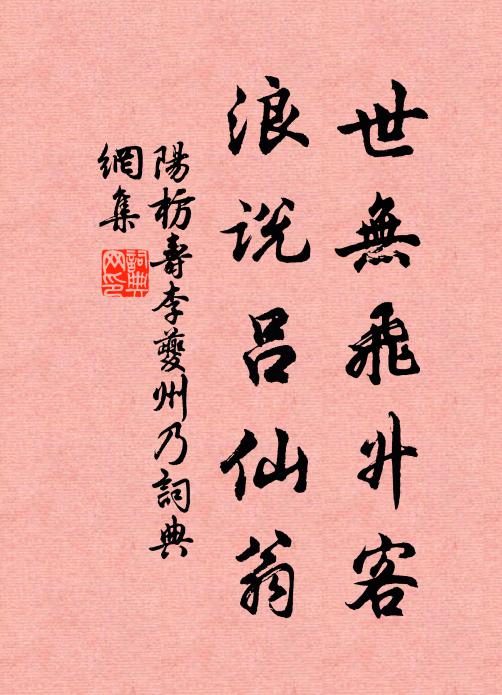 世無飛升客
浪説呂仙翁
陽枋壽李夔州乃詞典
網集
詞典網印